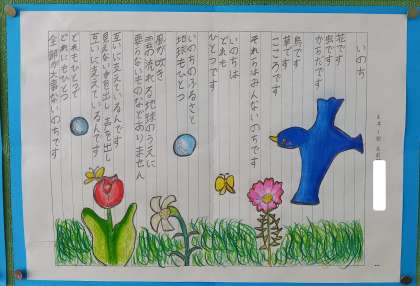 いのち
花です
虫です
からだです
鳥です
草です
こころです
それらはみんないのちです
いのちは
どれも
ひとつです
いのちのふるさと
地球もひとつ
風が吹き
雲の流れる地球のうえに
要らないものなどありません
互いに支えているんです
見えない手を出し 声を出し
互いに支えているんです
どれもひとつで
どれにもひとつ
全部が大事ないのちです